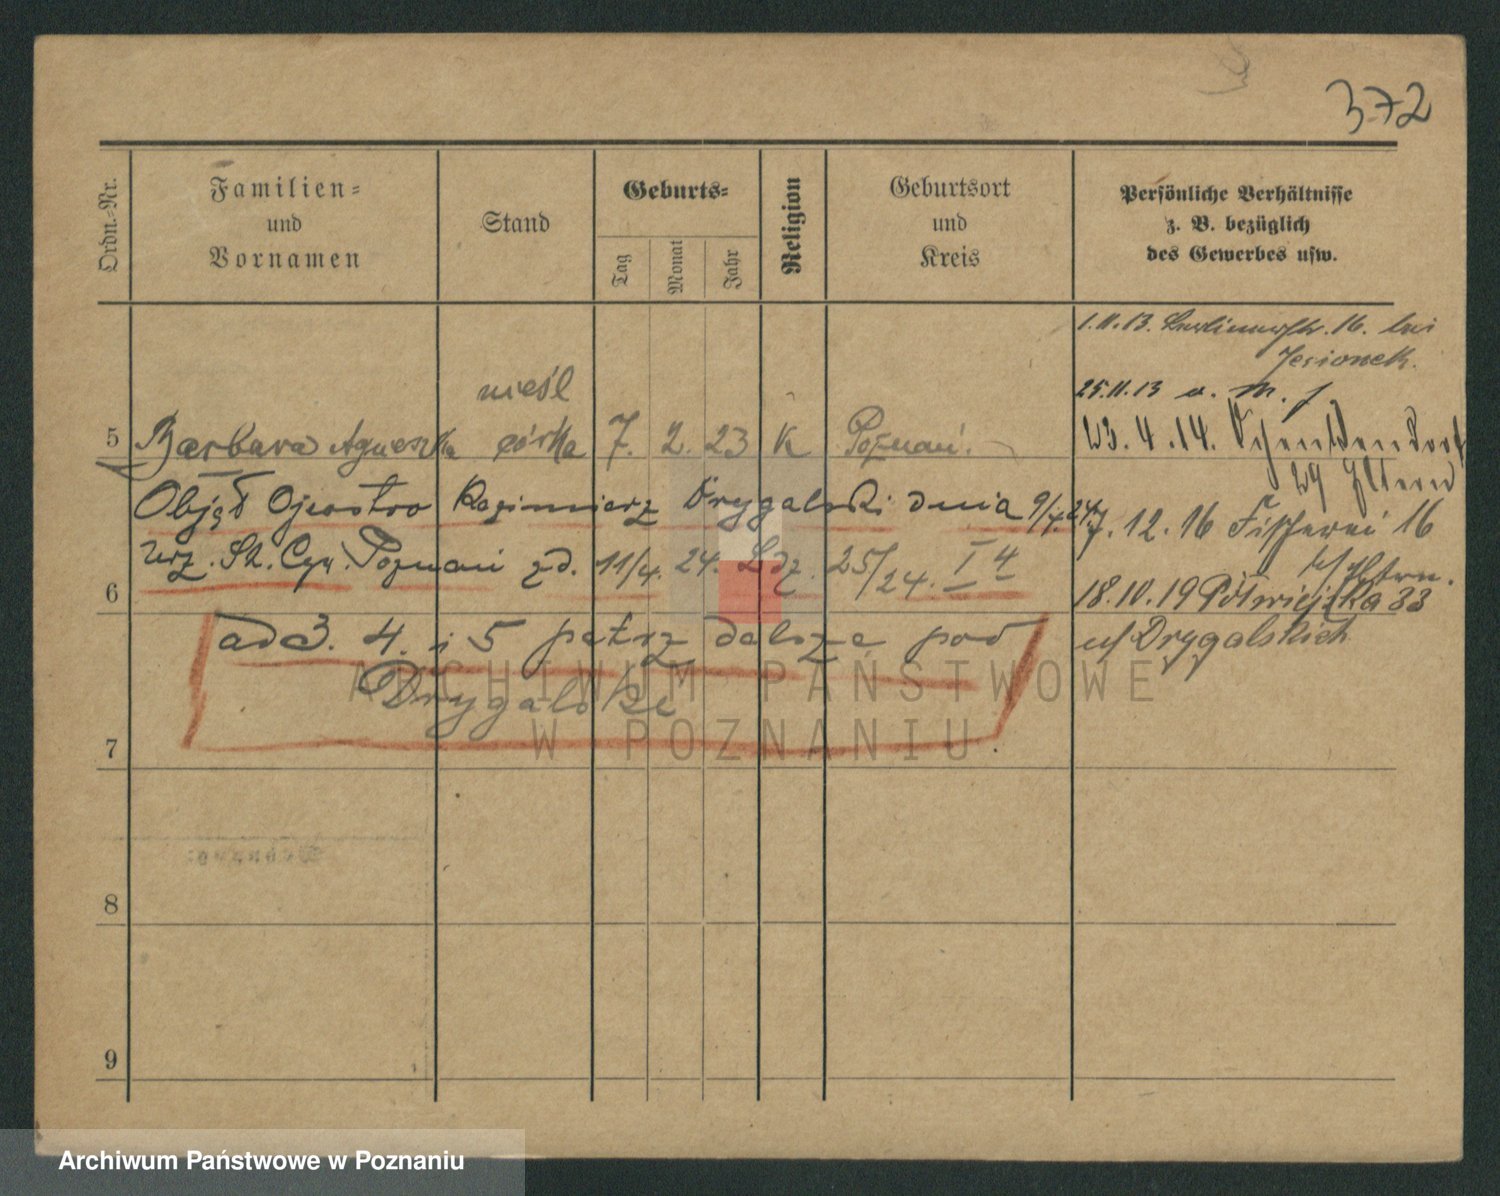 372
Ordn.-Nr.
Familien-
und
Vornamen
Stand
Geburts-
Tag
Monat
Jahr
Religion
Geburtsort
und
Kreis
Persönliche Verhältnisse
z. B. bezüglich
des Gewerbes usw.
1.11.13. Berlinerstr. 16. bei
Jesionek.
25.11.13
23.4.14.
17.12.16 Fischerei 16
b/ Eltern.
18.10.19 Półwiejska 33
u/ Drygalskich
nieśl
5 Barbara Agnieszka córka 7. 2. 23 k Poznań.
Objął Ojcostwo Kazimierz Drygalski dnia 9/4.24.
Urz. St. Cyw. Poznań zd. 11/4. 24. Ldz. 25/24. I 4
6
ad 3. 4. i 5 patrz dalsze pod
Drygalski
7
8
9
ARCHIWUM PAŃSTWOWE
W POZNANIU
Archiwum Państwowe w Poznaniu